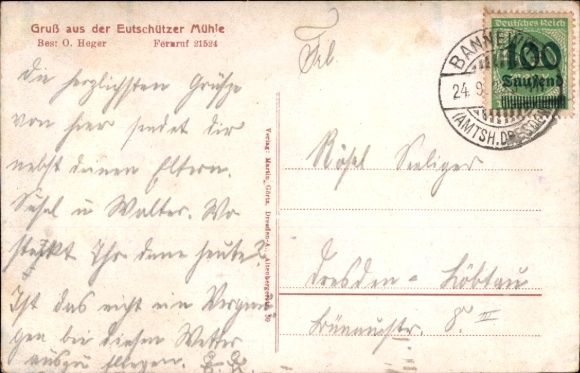 Gruß aus der Eutschützer Mühle
Bes: O. Heger Fernruf 21524
Die herzlichsten Grüße
von hier sendet dir
nebst deinen Eltern.
Susel u Walter. Wo
steckt Ihr denn heute?
Ist das nicht ein Vergnü-
gen bei diesem Wetter
auszufliegen.
Verlag: Martin Götze, Dresden-A., Altenbergerstr.
Frl.
Rösel Seeliger
Dresden = Löbtau
Brünnerstr. 8. III
Deutsches Reich
100
Tausend
BANNE
24. 9.
(AMTSH. DRESDEN